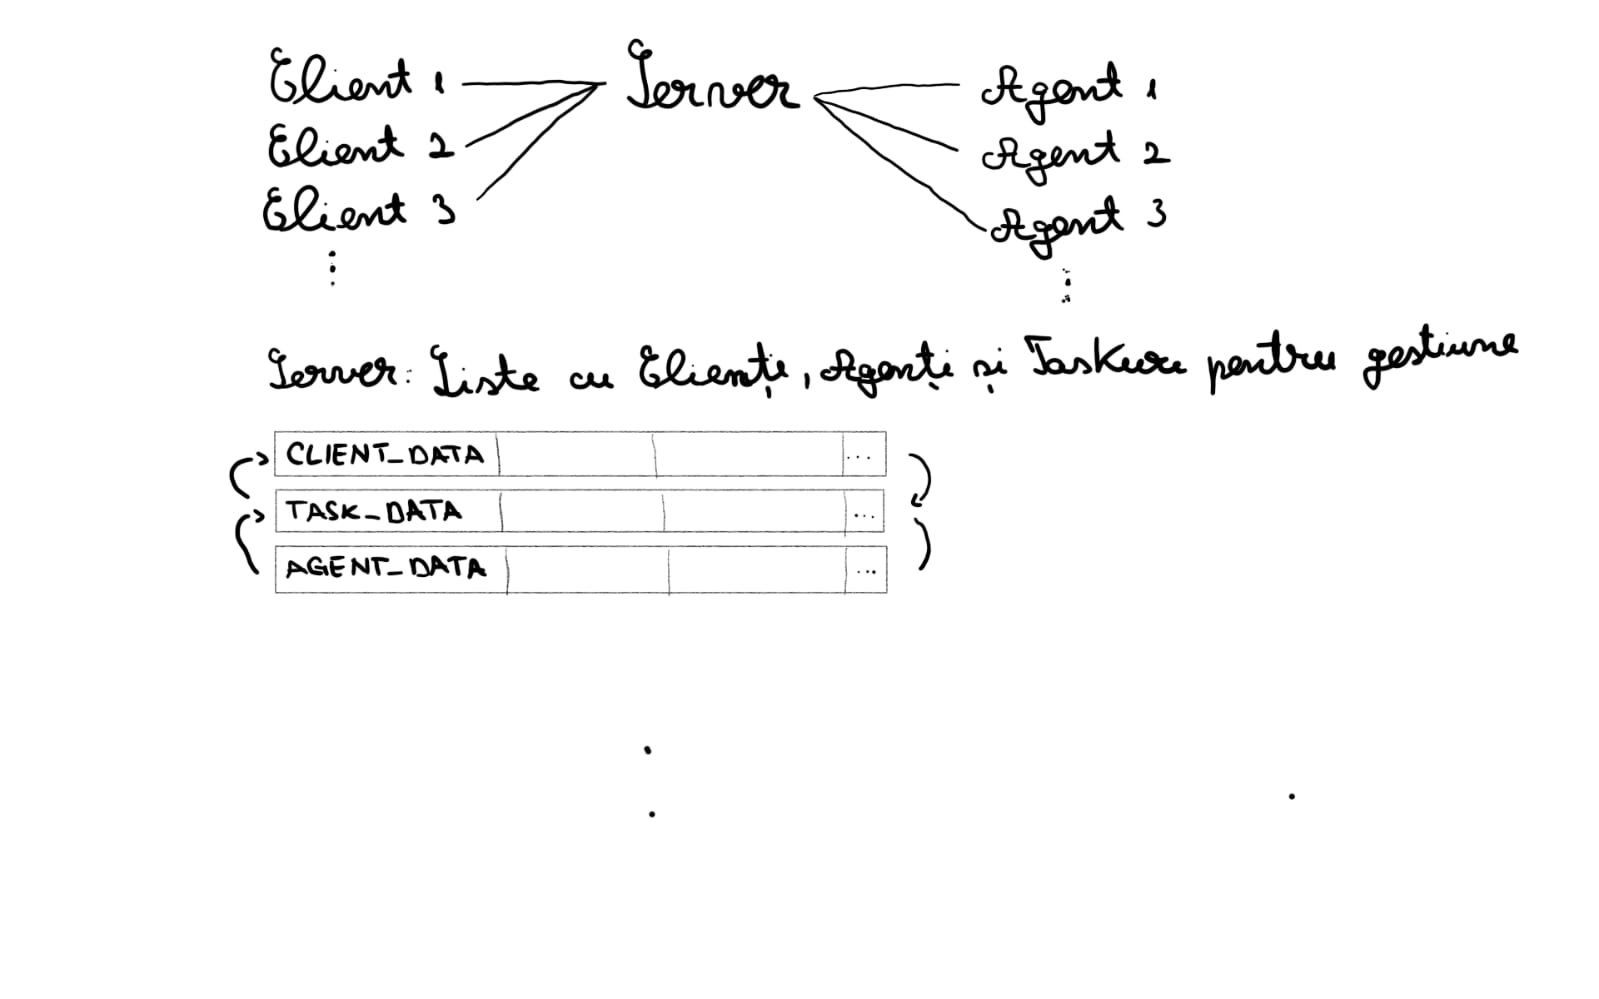 Client 1 Server Agent 1
Client 2 Agent 2
Client 3 Agent 3
⋮ ⋮
Server: Liste cu Clienți, Agenți și Taskuri pentru gestiune
CLIENT_DATA ...
TASK_DATA ...
AGENT_DATA ...